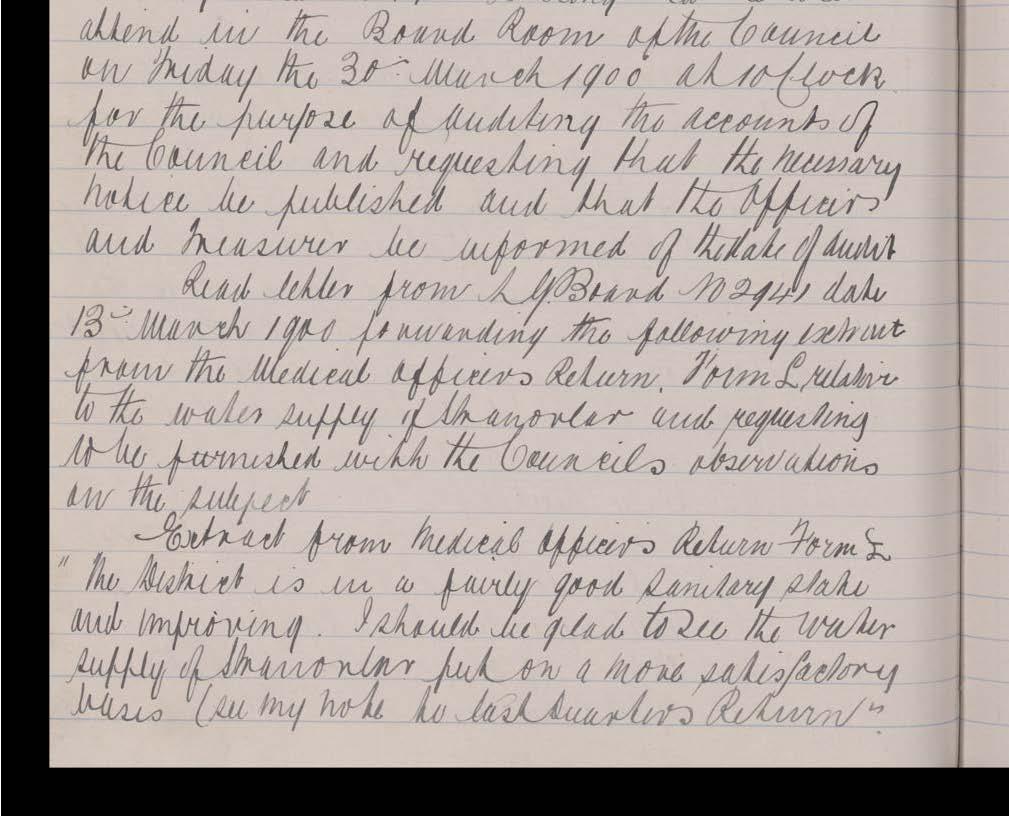 attend in the Board Room of the Council
on Friday the 30th March 1900 at 10 O'Clock
for the purpose of auditing the accounts of
the Council and requesting that the necessary
notice be published and that the Officers
and Treasurer be informed of the date of audit
Read letter from L G Board No 2941 date
13th March 1900 forwarding the following extract
from the Medical Officers Return, Form L relative
to the water supply of Stranorlar and requesting
to be furnished with the Councils observations
on the subject
Extract from Medical Officers Return Form L
"The District is in a fairly good sanitary state
and improving. I should be glad to see the water
supply of Stranorlar put on a more satisfactory
basis (see my note to last Quarters Return"